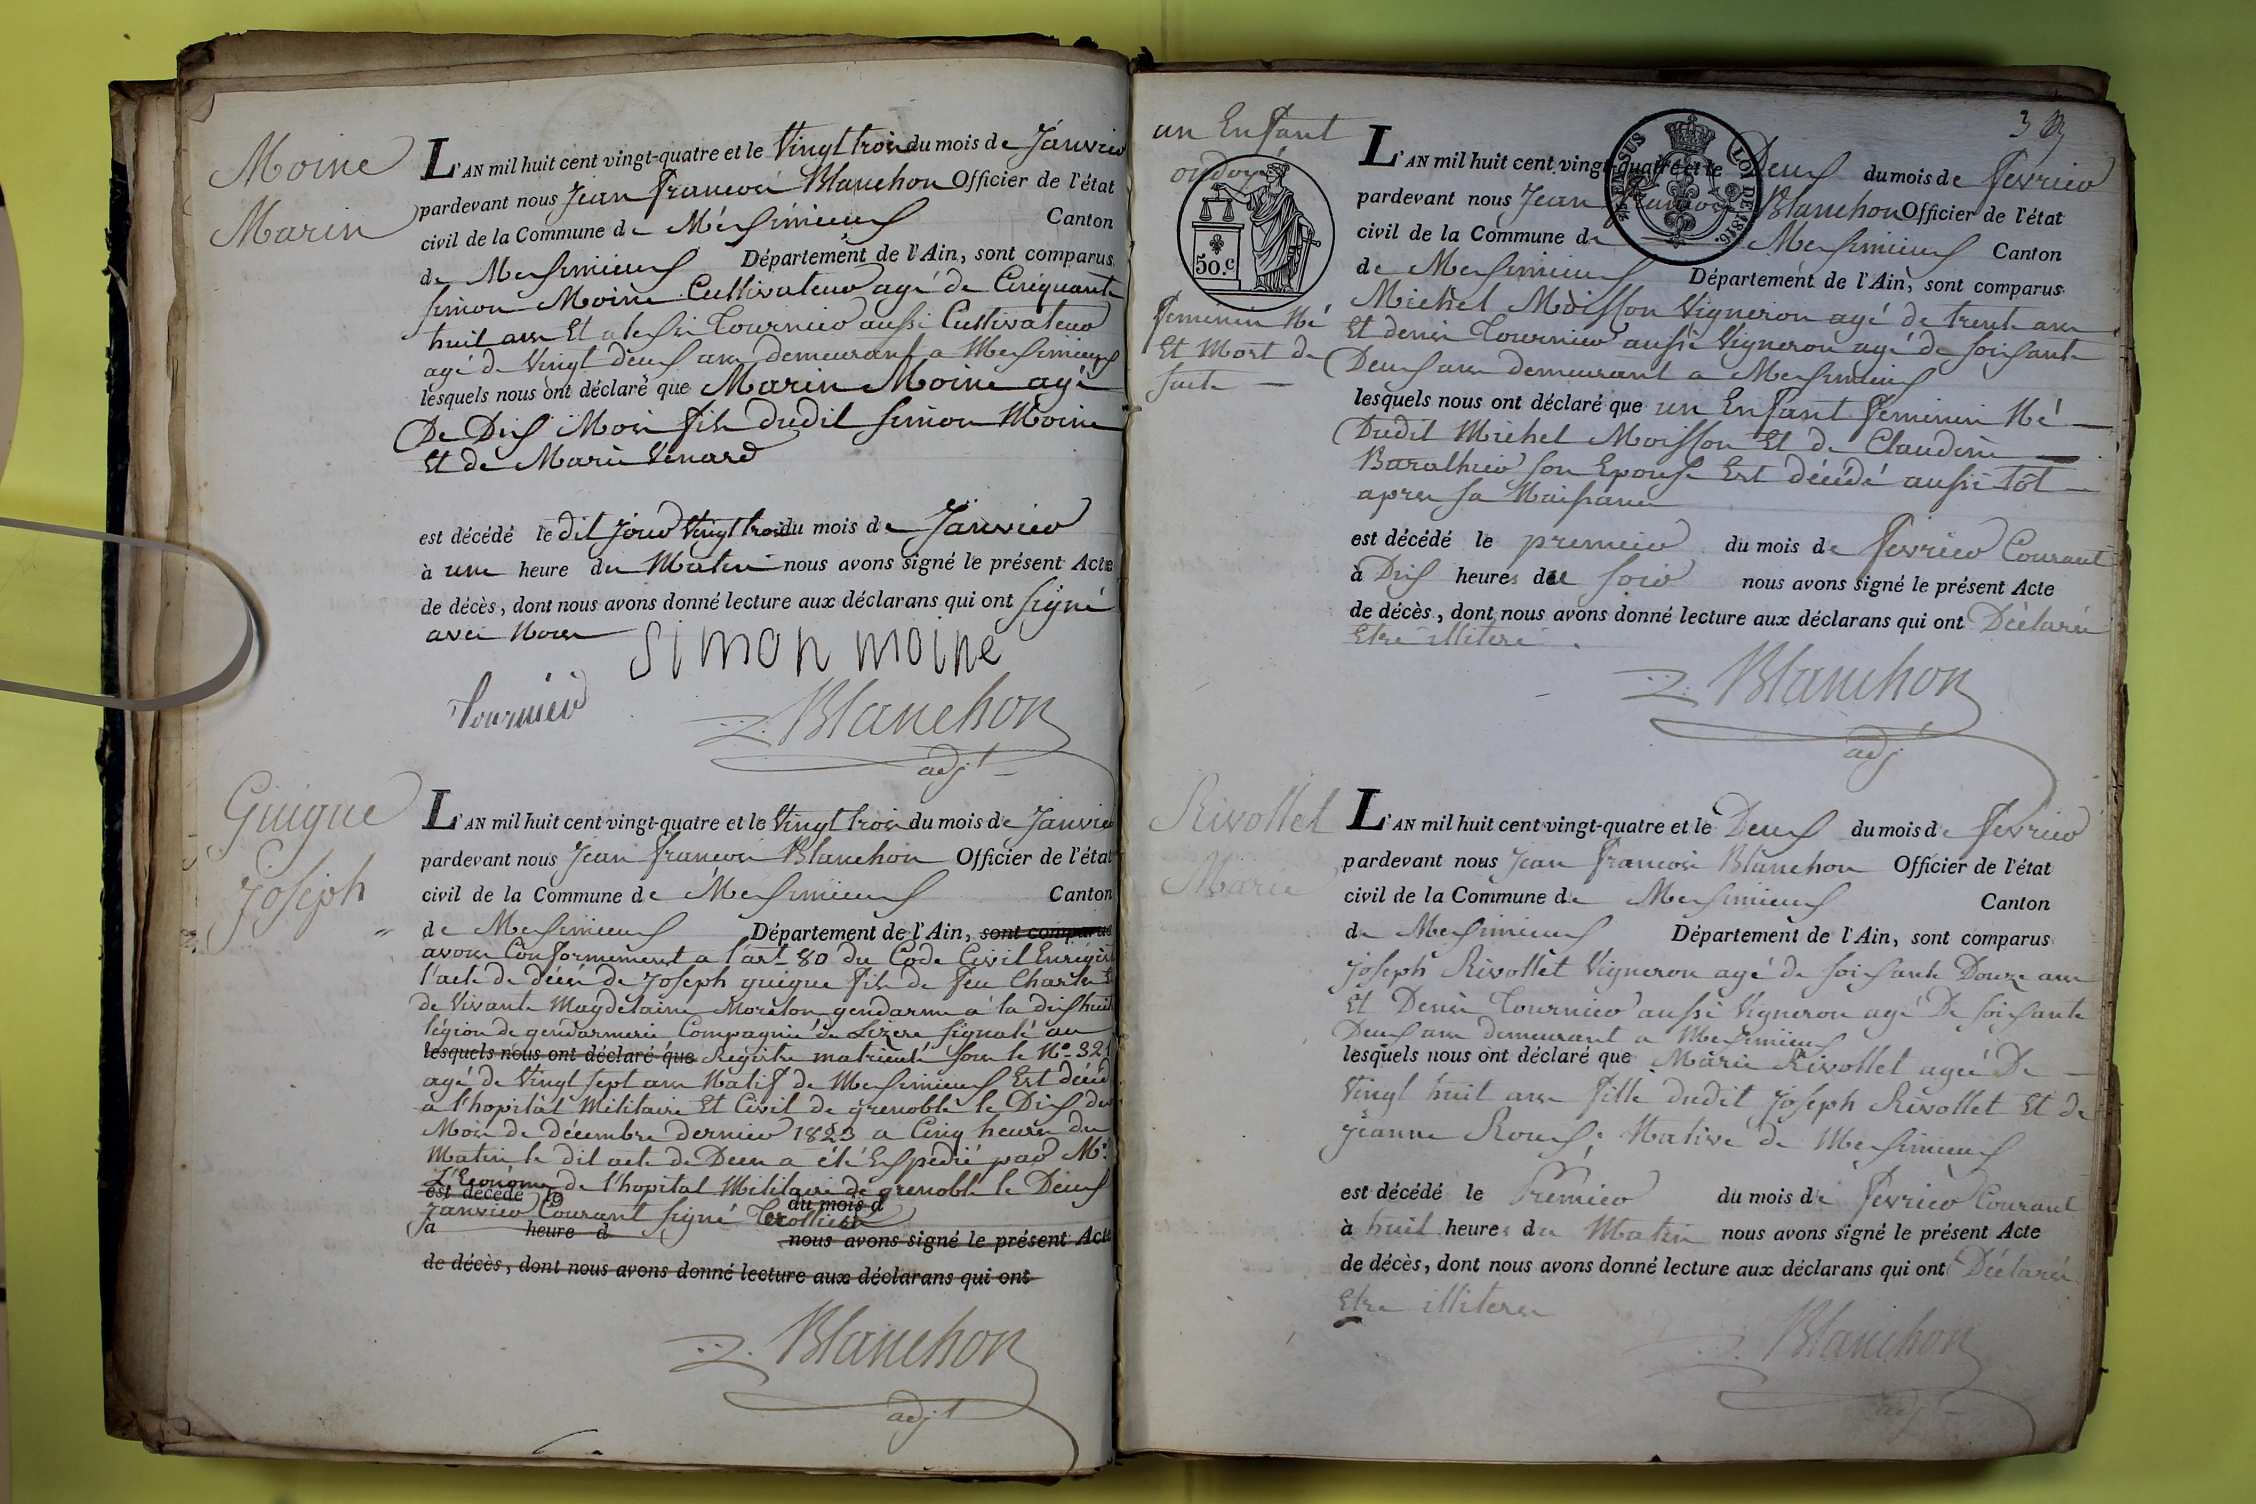 Moine
Marin
L'AN mil huit cent vingt-quatre et le Vingt trois du mois de Janvier
pardevant nous Jean francois Blanchon Officier de l'état
civil de la Commune de Meximieux Canton
de Meximieux Département de l'Ain, sont comparus
simon Moine Cultivateur agé de Cinquante
huit ans Et alessi Tournier aussi Cultivateur
agé de Vingt deux ans demeurant a Meximieux
lesquels nous ont déclaré que Marin Moine agé
De Dix Mois fils dudit simon Moine
Et de Marie Venard
est décédé le dit jour Vingt trois du mois de Janvier
à une heure du Matin nous avons signé le présent Acte
de décès, dont nous avons donné lecture aux déclarans qui ont signé
avec Nous
simon moine
Tournier
Blanchon
adjt
Guigue
Joseph
L'AN mil huit cent vingt-quatre et le Vingt trois du mois de Janvier
pardevant nous Jean francois Blanchon Officier de l'état
civil de la Commune de Meximieux Canton
de Meximieux Département de l'Ain, sont comparus
avons Conformement a l'art 80 du Code Civil Enregist
l'acte de décès de Joseph guigue fils de feu Charles Et
de Vivante Magdelaine Morelon gendarme à la dix huit
légion de gendarmerie Compagnie de Lizere signalé au
lesquels nous ont déclaré que Registre matricule sous le No 321
agé de Vingt sept ans Natif de Meximieux Est décédé
a l'hopital Militaire Et Civil de grenoble le Dix du
Mois de décembre dernier 1823 a Cinq heures du
Matin le dit acte de Deces a été Expedié par Mr
L'Econome de l'hopital Militaire de grenoble le Deux
est décédé le du mois d
Janvier Courant signé Trollier
à heure d nous avons signé le présent Acte
de décès, dont nous avons donné lecture aux déclarans qui ont
Blanchon
adjt
3
un Enfant
ondoyé
50.c
feminin Né
Et Mort de
suite
CENSUS LOI DE 1816.
L'AN mil huit cent vingt-quatre et le Deux du mois de fevrier
pardevant nous Jean francois Blanchon Officier de l'état
civil de la Commune de Meximieux Canton
de Meximieux Département de l'Ain, sont comparus
Michel Moisson Vigneron agé de trente ans
Et denis Tournier aussi Vigneron agé de soixante
Deux ans demeurant a Meximieux
lesquels nous ont déclaré que un Enfant feminin Né
Dudit Michel Moisson Et de Claudine
Baralhier son Epouse Est décédé aussi tôt
apres sa Naissance
est décédé le premier du mois de fevrier Courant
à Dix heures du soir nous avons signé le présent Acte
de décès, dont nous avons donné lecture aux déclarans qui ont Déclarés
Etre illiteré
Blanchon
adj
Rivollet
Marie
L'AN mil huit cent vingt-quatre et le Deux du mois de fevrier
pardevant nous Jean francois Blanchon Officier de l'état
civil de la Commune de Meximieux Canton
de Meximieux Département de l'Ain, sont comparus
Joseph Rivollet Vigneron agé de soixante Douze ans
Et Denis Tournier aussi Vigneron agé De soixante
Deux ans demeurant a Meximieux
lesquels nous ont déclaré que Marie Rivollet agée De
Vingt huit ans fille dudit Joseph Rivollet Et de
Jeanne Roux; Native de Meximieux
est décédé le Premier du mois de fevrier Courant
à huit heures du Matin nous avons signé le présent Acte
de décès, dont nous avons donné lecture aux déclarans qui ont Déclarés
Etre illiteres
Blanchon
adjt